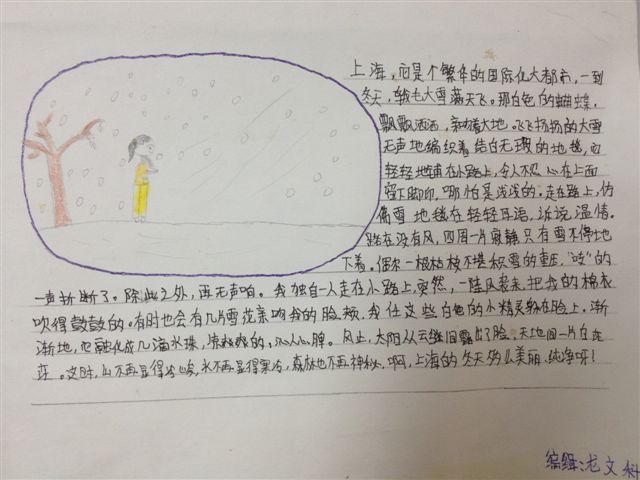 上海,它是个繁华的国际化大都市,一到
冬天,鹅毛大雪满天飞。那白色的蝴蝶,
飘飘洒洒,亲吻着大地。飞飞扬扬的大雪
无声地编织着结白无瑕的地毯,它
轻轻地铺在小路上,令人不忍心在上面
留下脚印,哪怕是浅浅的。走在路上,仿
佛雪地毯在轻轻耳语,诉说温情。
路在没有风,四周一片寂静只有雪不停地
下着。偶尔一根枯枝不堪积雪的重压,“吱”的
一声折断了。除此之外,再无声响。我独自一人走在小路上,突然,一阵风袭来,把我的棉衣
吹得鼓鼓的。有时也会有几片雪花亲吻我的脸颊,我任这些白色的小精灵躺在脸上,渐
渐地,它融化成几滴水珠,凉丝丝的,沁人心脾。风止,太阳从云缝间露出了脸,天地间一片白茫
茫。这时,山不再显得冷峻,水不再显得寒冷,森林也不再神秘,啊,上海的冬天多么美丽、纯净呀!
编辑:龙文科